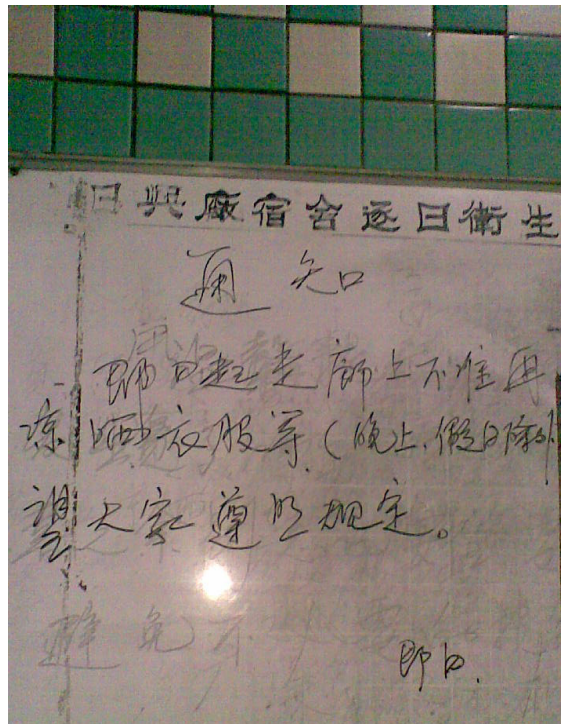 日興廠宿舍逐日衛生
通知
即日起走廊上不准再
凉晒衣服等(晚上.假日除外
望大家遵照规定。
避免不
即日.